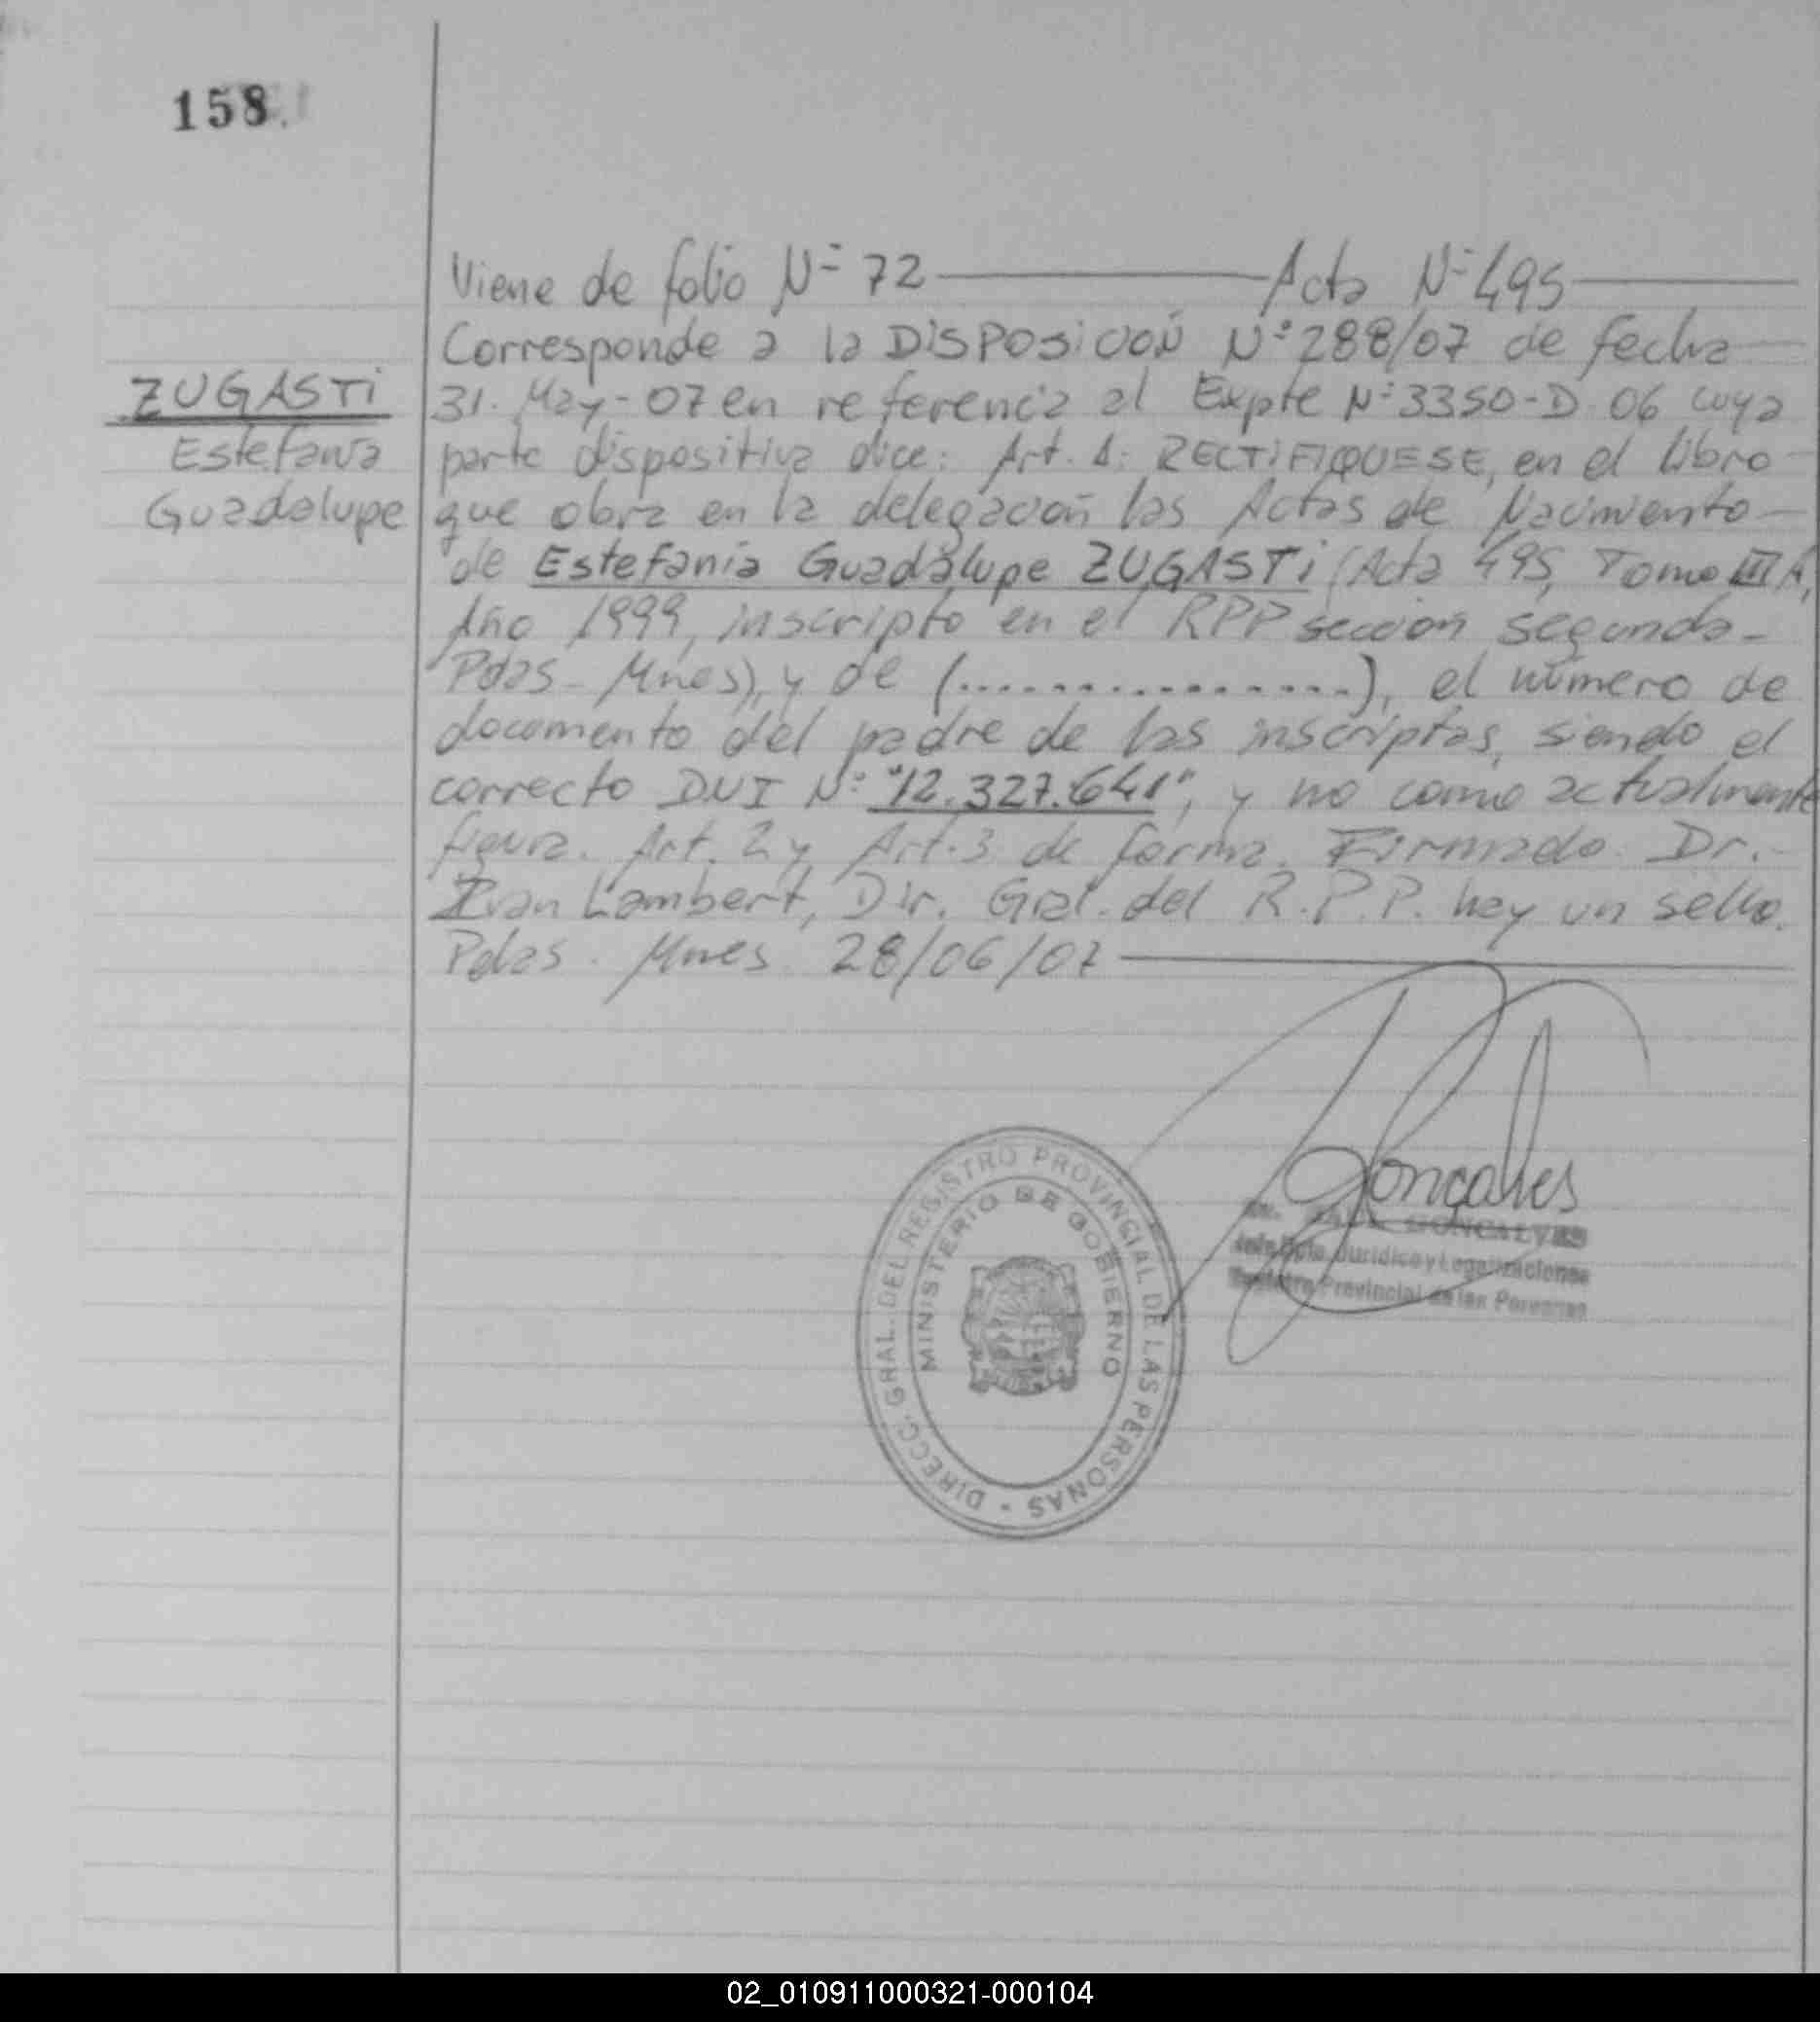 158.
Viene de folio Nº 72 Acta Nº 495
Corresponde a la DISPOSICIÓN Nº 288/07 de fecha
ZUGASTI
Estefania
Guadalupe
31. May-07 en referencia al Expte Nº 3350-D-06 cuya
parte dispositiva dice: Art. 1: RECTIFIQUESE, en el libro
que obra en la delegación las Actas de Nacimiento
de Estefanía Guadalupe ZUGASTI (Acta 495, Tomo III A,
Año 1999, inscripto en el RPP sección segunda-
Pdas-Mnes), y de (................), el número de
documento del padre de las inscriptas, siendo el
correcto DNI Nº "12.327.641", y no como actualmente
figura. Art. 2 y Art. 3 de forma. Firmado Dr.
Ivan Lambert, Dir. Gral. del R.P.P. hay un sello.
Pdas. Mnes 28/06/07
Goncalves
GONCALVES
Jurídico y Legalizaciones
Registro Provincial de las Personas
DIRECC. GRAL. DEL REGISTRO PROVINCIAL DE LAS PERSONAS
MINISTERIO DE GOBIERNO
02_010911000321-000104